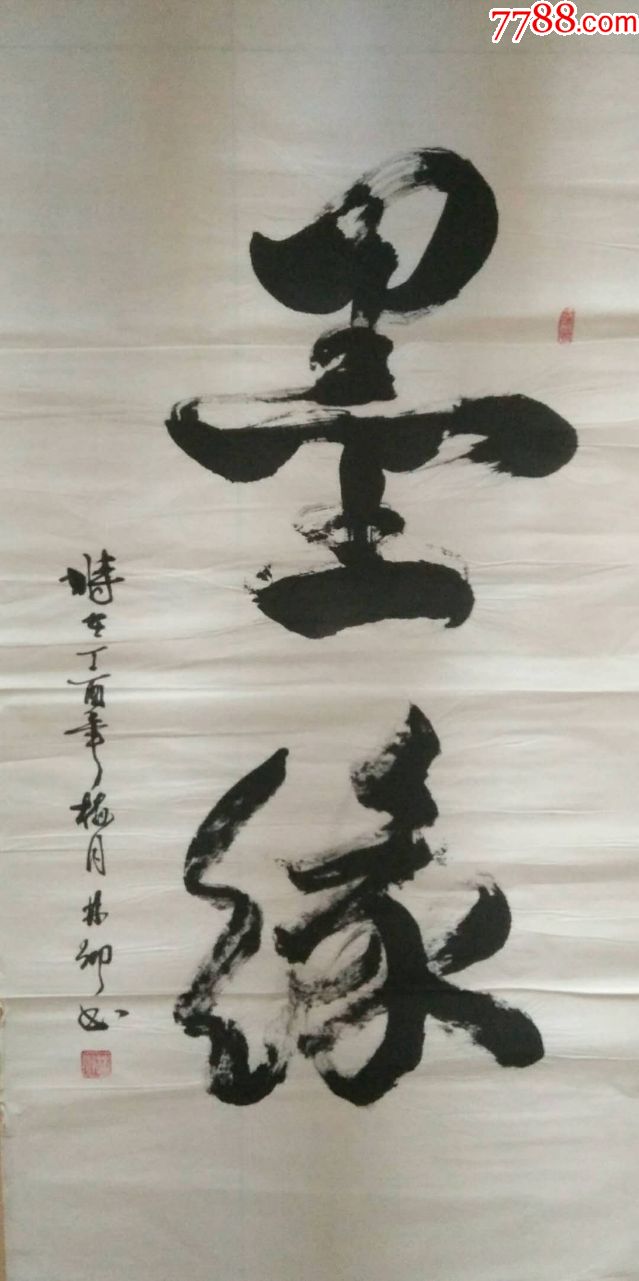 7788.com
墨缘
时在丁酉年梅月林卿书